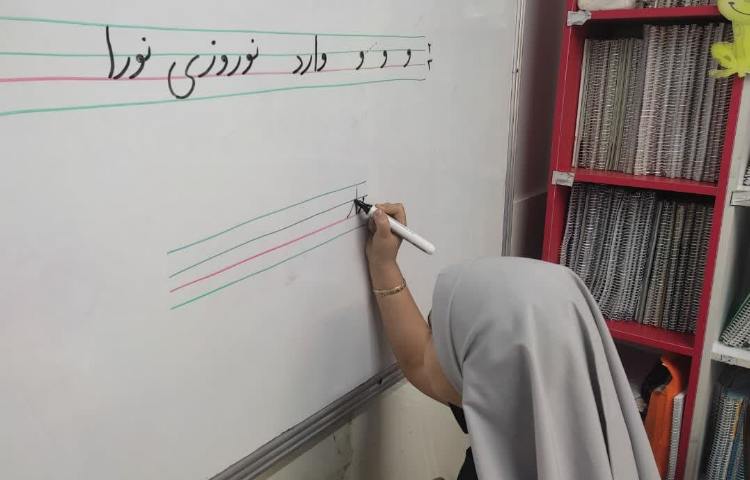 و و و وارد نوروزی نورا